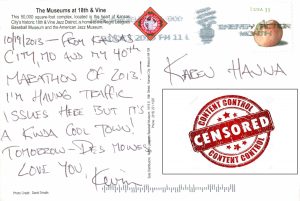 The Museums at 18th & Vine
This 50,000 square-foot complex, located in the heart of Kansas
City's historic 18th and Vine Jazz District, is home to the Negro Leagues
Baseball Museum and the American Jazz Museum.
10/19/2013 - FROM KANSAS
CITY, MO AND MY 40TH
MARATHON OF 2013!
I'M HAVING TRAFFIC
ISSUES HERE BUT IT'S
A KINDA COOL TOWN!
TOMORROW - DES MOINES
LOVE YOU,
Kevin
Photo Credit: David Smalls
USA 33
PM
ENERGY ACTION
MONTH
KAREN HANNA
CONTENT CONTROL
CENSORED
CONTENT CONTROL